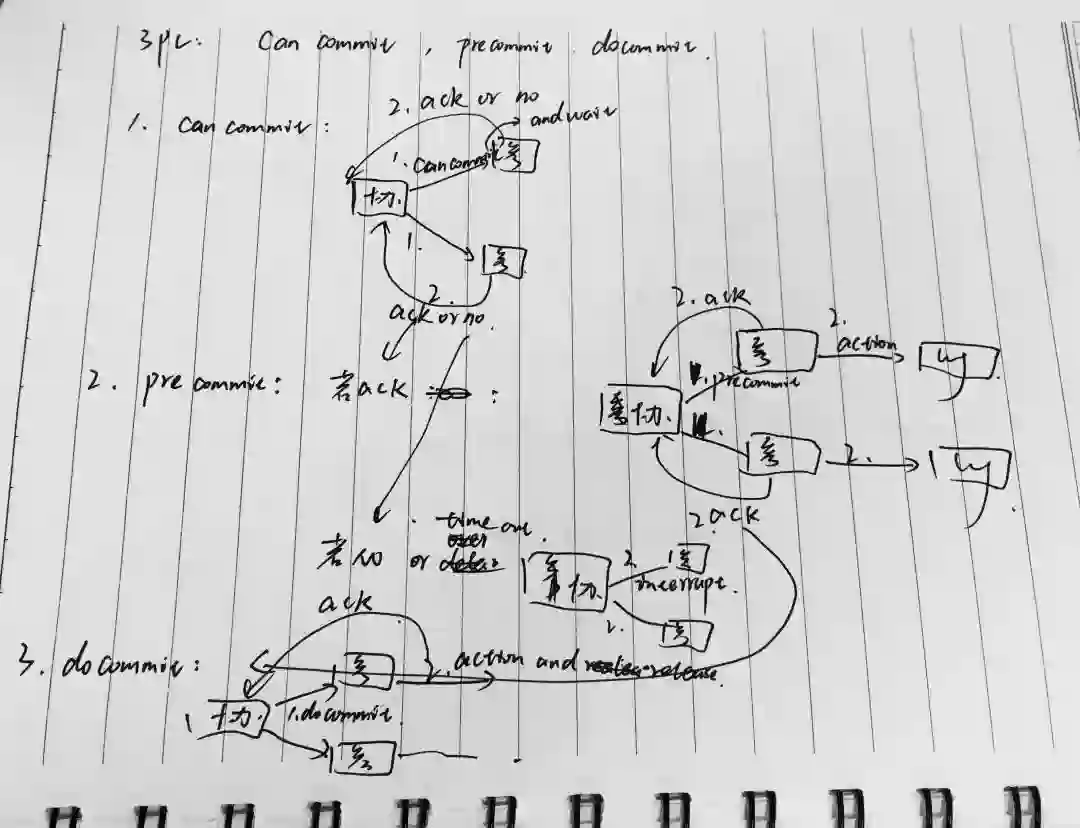 3pc: Can commit, precommit docommit.
1. Can commit:
2. ack or no
and wait
1. Can commit
参
协.
1.
参
2.
ack or no.
2. pre commit: 若ack :
2. ack
参
2.
action
1. precommit
协.
参
2.
2 ack
若no or time out.
协.
2.
参
interrupt.
2.
参
3. do commit:
ack
参
2. action and release.
协.
1. do commit
参